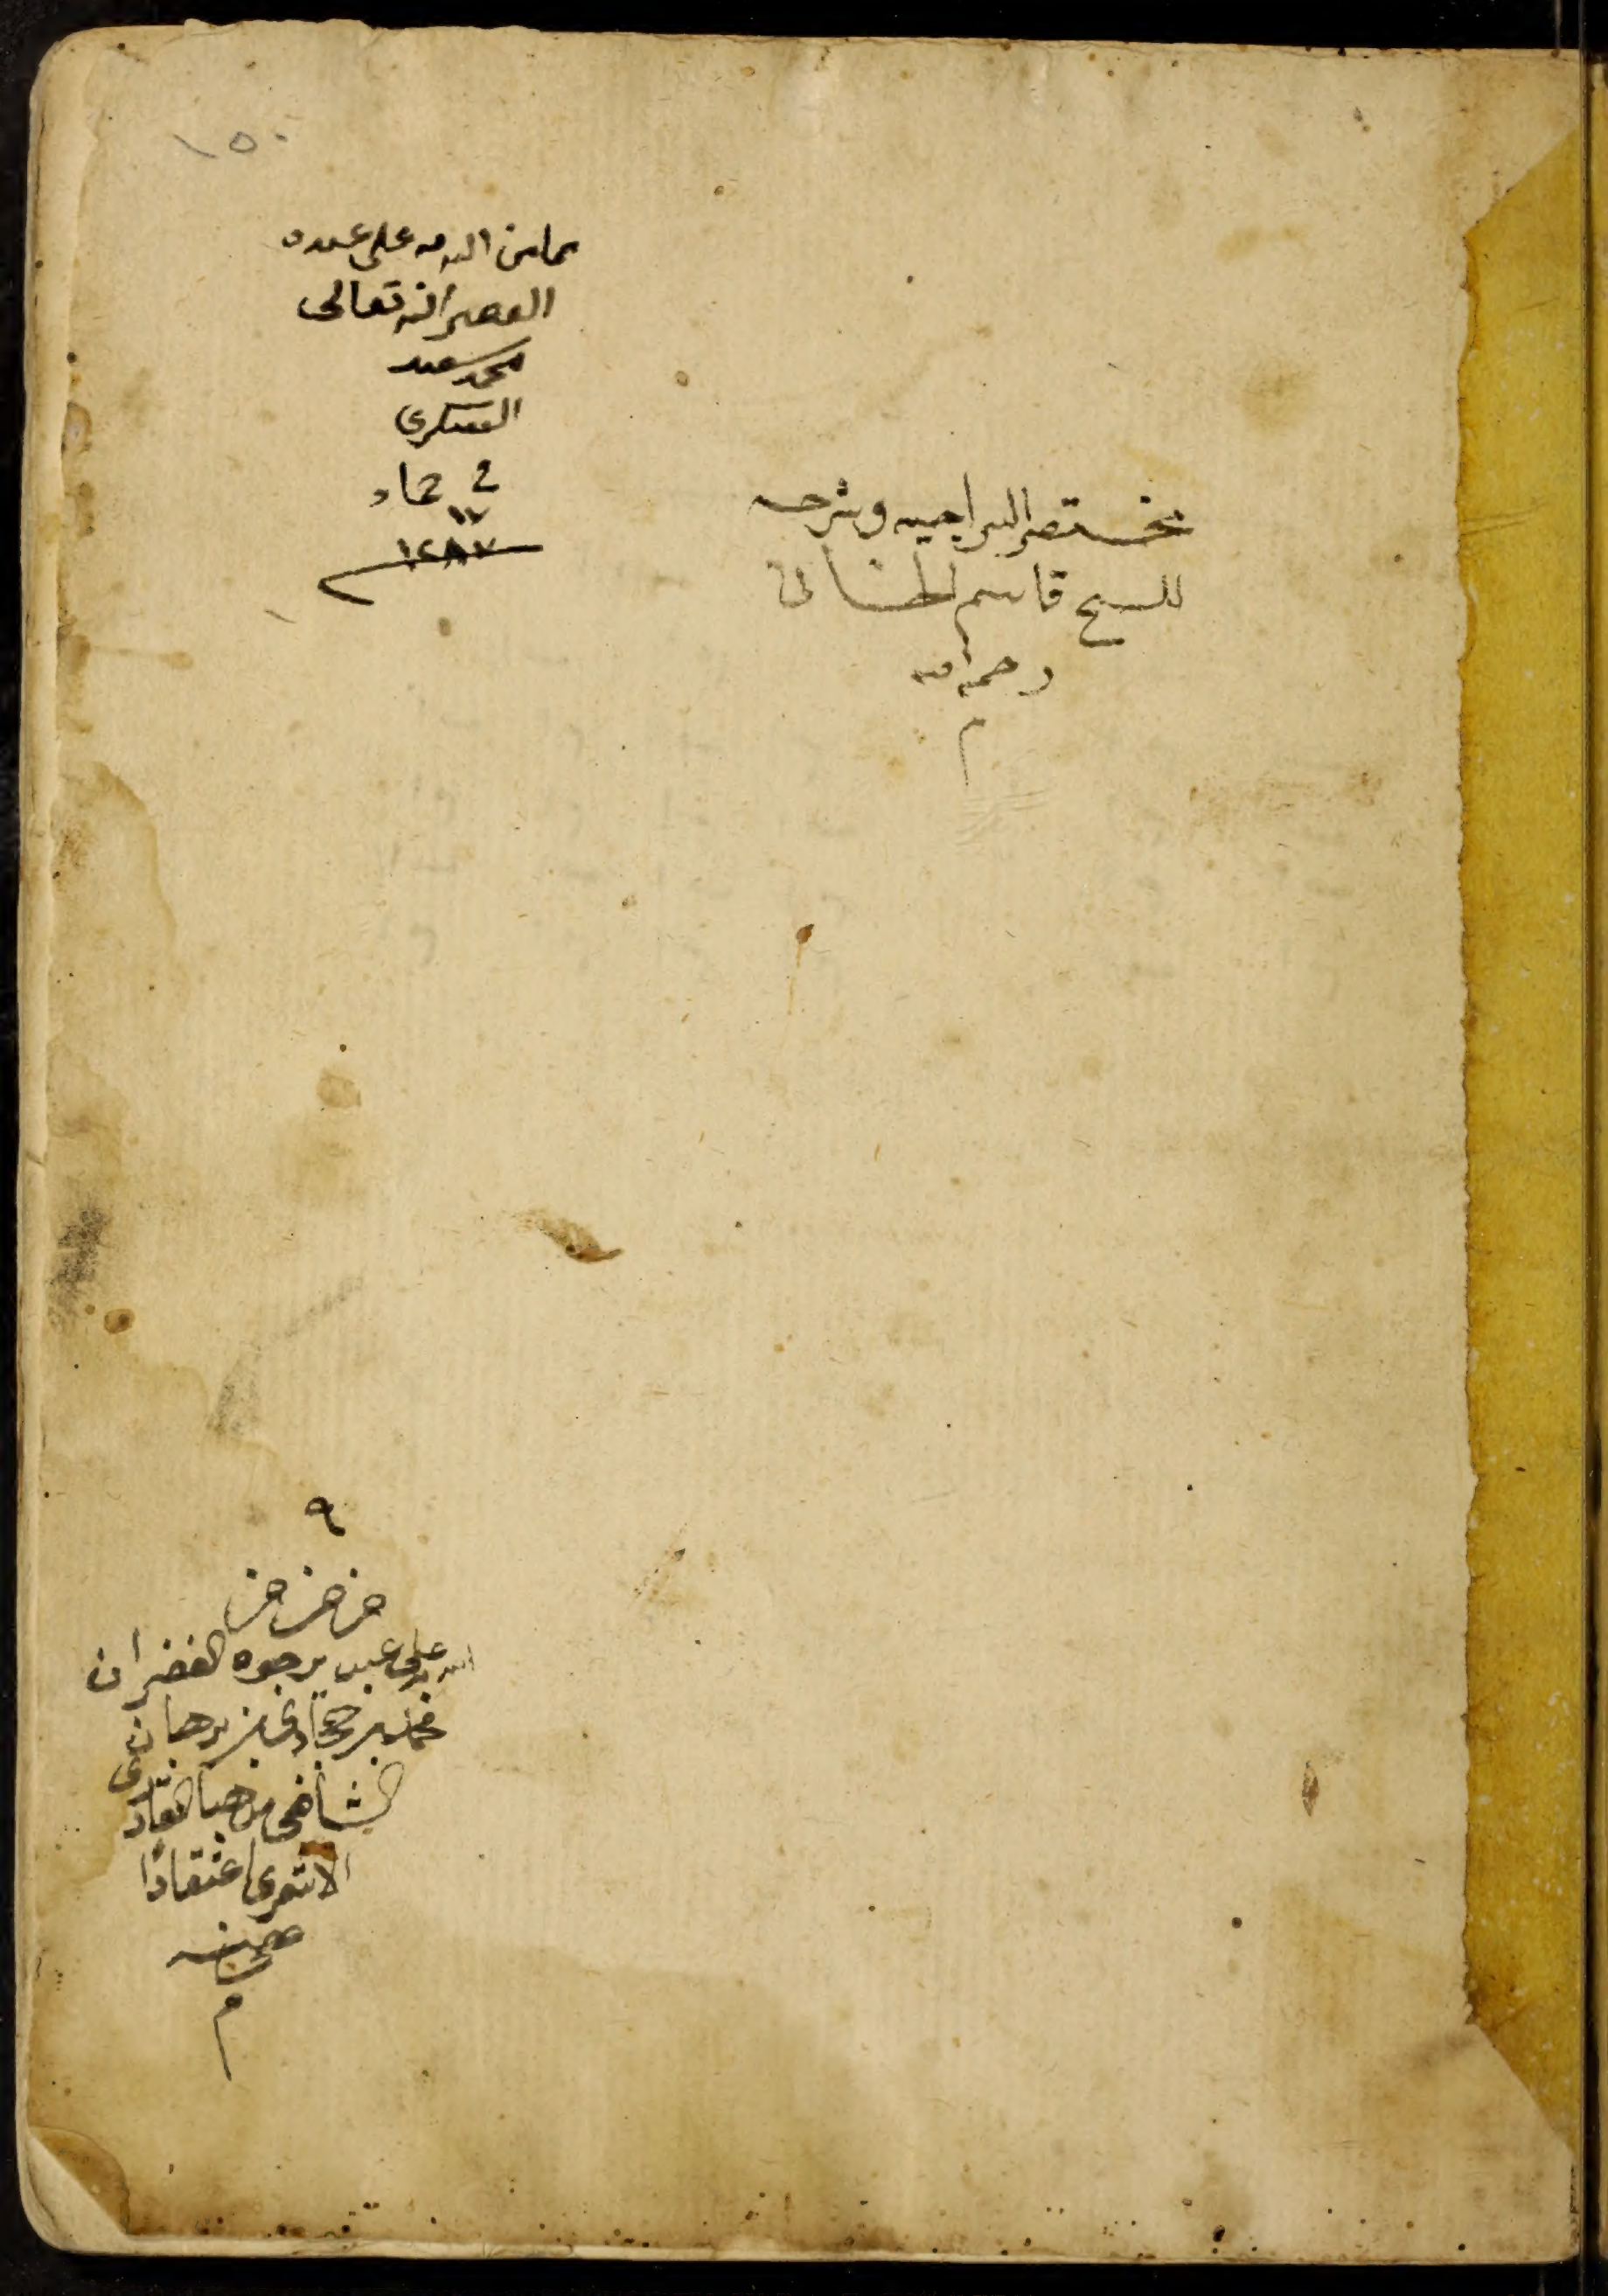 ١٥٠
مما من الله به على عبده
الفقير اليه تعالى
محمد سعيد
العسكرى
فى جماد
١٧
١٢٨٧
مختصر السراجيه وشرحه
للشيخ قاسم الخانى
رحمه الله
م
٩
من من من
الله على عبد يرجوه الغفران
محمد بن حجازى بن برهان
الشافعى مذهبا القادرى
الاشعرى اعتقادا
م